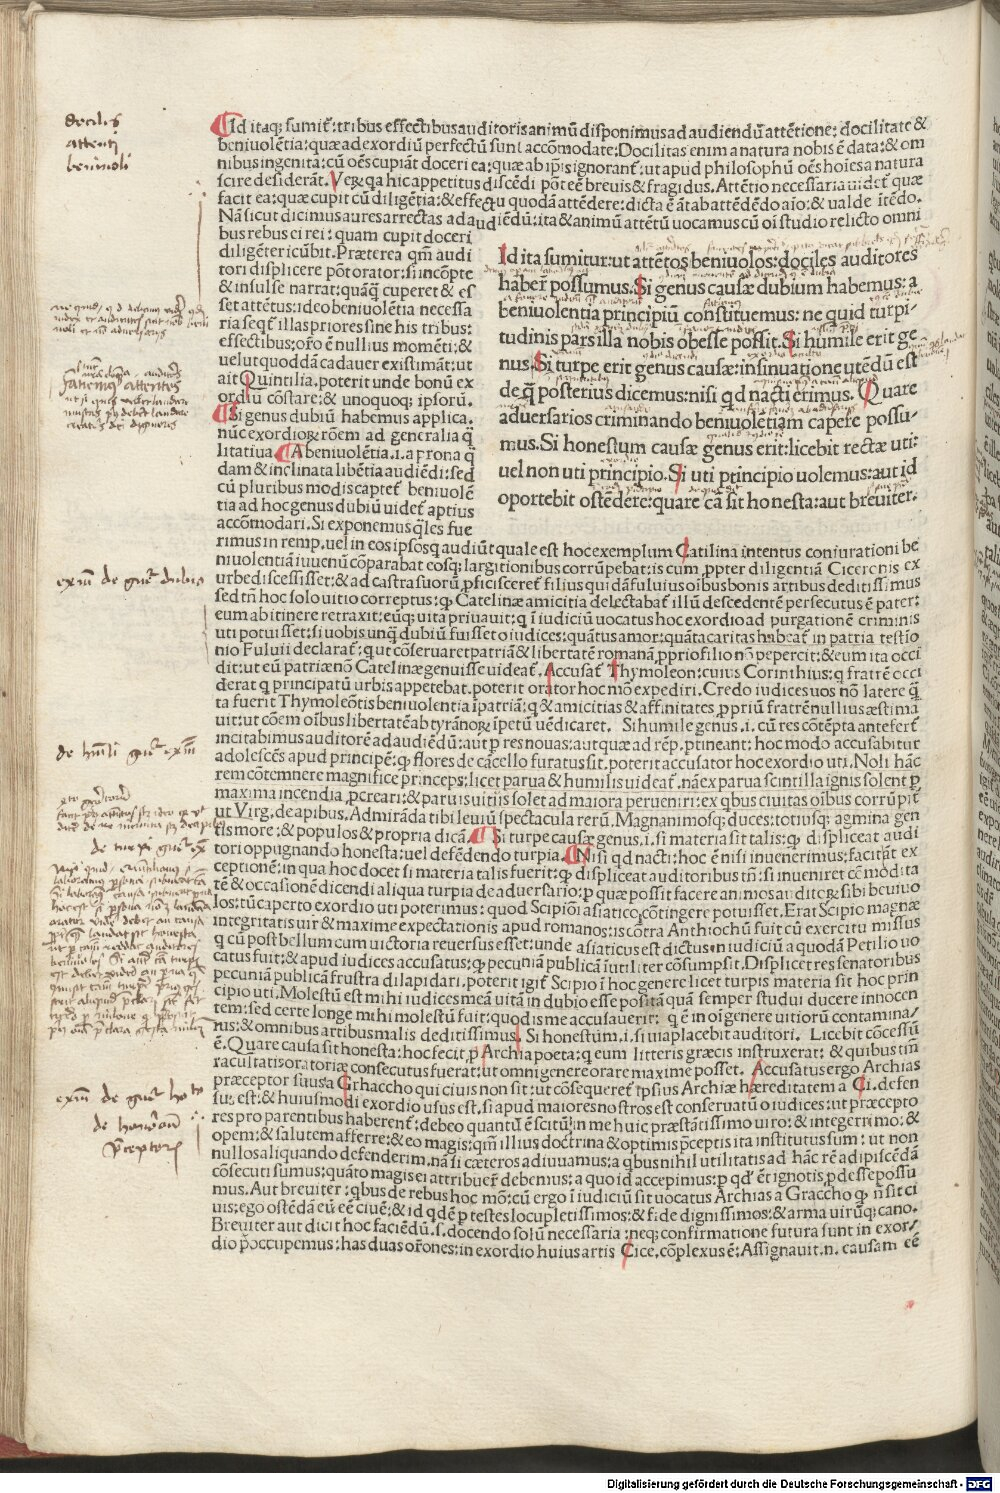 docilis
attenti
beniuoli
Id itaq; sumit̄: tribus effectibus auditoris animū disponimus ad audiendū attētione: docilitate &
beniuolētia: quæ ad exordiū perfectū sunt accōmodate: Docilitas enim a natura nobis ē data: & om
nibus ingenita: cū oēs cupiāt doceri ea: quæ ab ip̄is ignorant̄: ut apud philosophū oēs hoīes a natura
scire desiderāt. Veꝝ qa hic appetitus discēdi pōt eē breuis & fragidus. Attētio necessaria uidet̄ quæ
facit ea: quæ cupit cū diligētia: & effectu quodā attēdere: dicta ē āt ab attēdēdo aīo: & ualde ītēdo.
Nā sicut dicimus aures arrectas ad audiēdū: ita & animū attētū uocamus cū oī studio relicto omni
bus rebus ei rei: quam cupit doceri
diligēter icūbit. Præterea qm̄ audi
tori displicere pōt orator: si incōpte
& insulse narrat: quāq̄ cuperet & es
set attētus: ideo beniuolētia necessa
ria seqt̄ illas priores sine his tribus:
effectibus: or̄o ē nullius momēti: &
uelut quoddā cadauer existimāt: ut
ait Quintilia. poterit unde bonū ex
ordiū cōstare: & unoquoq; ipsorū.
Si genus dubiū habemus applica.
nūc exordioꝝ rōem ad generalia q̄
litatiua A beniuolētia. i. a prona q̄
dam & inclinata libētia audiēdi: sed
cū pluribus modis captet̄ beniuolē
tia ad hoc genus dubiū uidet̄ aptius
accōmodari. Si exponemus q̄les fue
Id ita sumitur: ut attētos beniuolos: dociles auditores
haber̄ possumus. Si genus causæ dubium habemus: a
beniuolentia principiū constituemus: ne quid turpi-
tudinis pars illa nobis obesse possit. Si humile erit ge
nus. Si turpe erit genus causæ: insinuatione utēdū est
de q̄ posterius dicemus: nisi qd nacti erimus. Quare
aduersarios criminando beniuoletiam capere possu-
mus. Si honestum causæ genus erit: licebit rectæ uti:
uel non uti principio. Si uti principio uolemus: aut id
oportebit ostēdere: quare cā sit honesta: aut breuiter.
rimus in remp. uel in eos ipsosq; audiūt quale est hoc exemplum Catilina intentus coniurationi be
niuolentiā iuuenū cōparabat eosq; largitionibus corrūpebat: is cum ꝓpter diligentiā Ciceronis ex
urbe discessisset: & ad castra suorū ꝓficisceret̄ filius quidā fuluius oībus bonis artibus deditissimus
sed tn̄ hoc solo uitio correptus: qꝫ Catelinæ amicitia delectabat̄ illū descedentē persecutus ē pater:
eum ab itinere retraxit: eūq; uita priuauit: q ī iudiciū uocatus hoc exordio ad purgationē criminis
uti potuisset: si uobis unq̄ dubiū fuisset o iudices: quātus amor: quāta caritas habeat̄ in patria testīo
nio Fuluii declarat̄: q ut cōseruaret patriā & libertatē romanā ꝓprio filio nō pepercit: & eum ita occi
dit: ut eū patriæ nō Catelinæ genuisse uideat̄. Accusat̄ Thymoleon: cuius Corinthius: q fratrē occi
derat q principatū urbis appetebat. poterit orator hoc mō expediri. Credo iudices uos nō latere q̄
ta fuerit Thymoleōtis beniuolentia īpatriā: q & amicitias & affinitates ꝓpriū fratrē nullius æstima
uit: ut cōem oībus libertatē ab tyrānoꝝ īpetū uēdicaret. Si humile genus. i. cū res cōtēpta antefert̄
incitabimus auditorē ad audiēdū: aut ꝑ res nouas: aut quæ ad rēp. ptineant: hoc modo accusabitur
adolescēs apud principē: qꝫ flores de cācello furatus sit. poterit accusator hoc exordio uti. Noli hāc
rem cōtemnere magnifice princeps: licet parua & humilis uideat̄. nā ex parua scintilla ignis solent ꝑ
maxima incendia ꝓcreari: & paruis uitiis solet ad maiora perueniri: ex qbus ciuitas oībus corrūpit̄
ut Virg. de apibus. Admirāda tibi leuiū spectacula rerū. Magnanimosq; duces: totiusq; agmina gen
tis more: & populos & propria dicā. Si turpe causæ genus. i. si materia sit talis: qꝫ displiceat audi
tori oppugnando honesta: uel defēdendo turpia. Nisi qd nacti: hoc ē nisi inuenerimus: facit āt ex
ceptionē: in qua hoc docet si materia talis fuerit: qꝫ displiceat auditoribus tn̄: si inueniret cōmōdita
tē & occasionē dicendi aliqua turpia de aduersario: ꝑ quæ possit facere animos auditoꝝ sibi beniuo
los: tū caperto exordio uti poterimus: quod Scipioi asiatico cōtingere potuisset. Erat Scipio magnæ
integritatis uir & maxime expectationis apud romanos: is cōtra Anthiochū fuit cū exercitu missus
q cū post bellum cum uictoria reuersus esset: unde asiaticus est dictus in iudiciū a quodā Petilio uo
catus fuit: & apud iudices accusatus: qꝫ pecuniā publicā iutiliter cōsumpsit. Displicet res senatoribus
pecuniā publicā frustra dilapidari. poterit igit̄ Scipio ī hoc genere licet turpis materia sit hoc prin
cipio uti. Molestū est mihi iudices meā uitā in dubio esse positā quā semper studui ducere innocen
tem: sed certe longe mihi molestū fuit: quod is me accusauerit: q ē in oī genere uitiorū contamina/
tus: & omnibus artibus malis deditissimus. Si honestum. i. si uia placebit auditori. Licebit cōcessū
ē. Quare causa sit honesta: hoc fecit ꝓ Archia poeta: q eum litteris græcis instruxerat: & quibus tm̄
facultatis oratoriæ consecutus fuerat: ut omni genere orare maxime posset. Accusatus ergo Archias
præceptor suus a Grhaccho qui ciuis non sit: ut cōsequeret̄ ipsius Archiæ hæreditatem a Ci. defen
sus est: & huiusmodi exordio usus est, si apud maiores nostros est conseruatū o iudices: ut præcepto
res pro parentibus haberent̄: debeo quantū ē scitū: in me huic præstātissimo uiro: & integerrimo: &
opem: & salutem afferre: & eo magis: qm̄ illius doctrina & optimis p̄ceptis ita institutus sum: ut non
nullos aliquando defenderim. nā si cæteros adiuuamus: a qbus nihil utilitatis ad hāc rē adipiscēdā
cōsecuti sumus: quāto magis ei attribuer̄ debemus: a quo id accepimus: ꝑ qd' ēt ignotis ꝓdesse possu
mus. Aut breuiter: qbus de rebus hoc mō: cū ergo ī iudiciū sit uocatus Archias a Graccho qꝫ n̄ sit ci
uis: ego ostēdā eū eē ciuē: & id qdē ꝑ testes locupletissimos: & fide dignissimos: & arma uirūq; cano.
Breuiter aut dicit hoc faciēdū. s. docendo solū necessaria: neq; confirmatione futura sunt in exor/
dio p̄occupemus: has duas or̄ones: in exordio huius artis Cice. cōplexus ē: Assignauit. n. causam eē
exm̄ de gn̄e dubio
de hūili gn̄e exm̄
de turpi gn̄e ex
exm̄ de gn̄e hōto
de honorād
p̄ceptorū
Digitalisierung gefördert durch die Deutsche Forschungsgemeinschaft - DFG